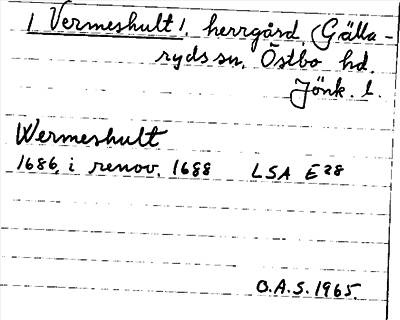 / Vermeshult /, herrgård, Gälla-
ryds sn, Östbo hd.
Jönk. l.
Wermeshult
1686, i renov. 1688 LSA E28
O.A.S. 1965.